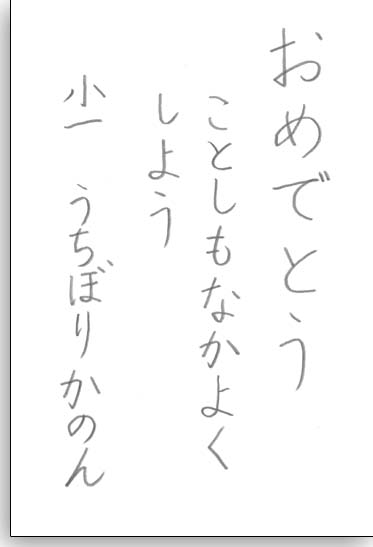 おめでとう
ことしもなかよく
しよう
小一 うちぼりかのん